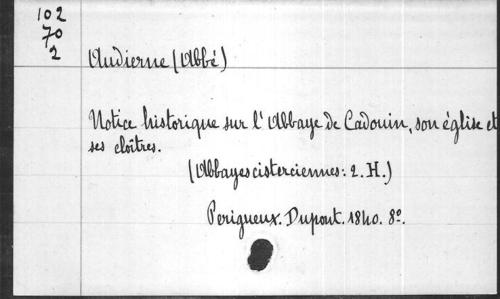 102
70
2
Audierne (Abbé)
Notice historique sur l'Abbaye de Cadouin, son église et
ses cloîtres.
(Abbayes cisterciennes: 2. H.)
Périgueux. Dupont. 1840. 8º.